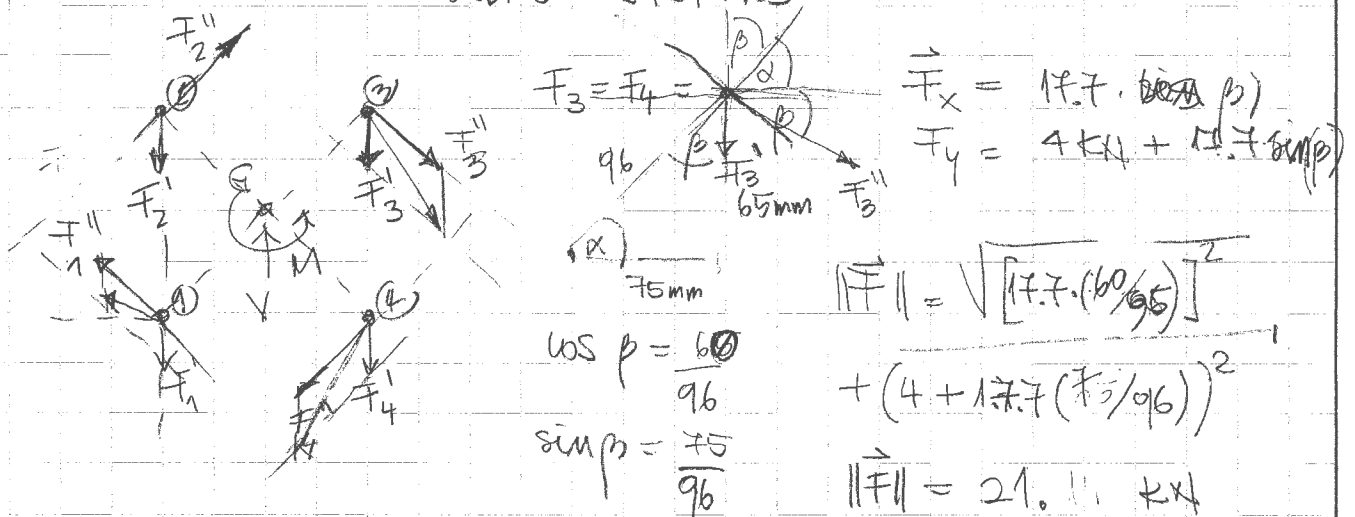 F₂''
②
F₂'
③
F₃''
F₃'
G
M
V
F₁''
①
F₁'
④
F₄'
F₃ = F₄ =
β
α
β
96
β
F₃'
65mm
F₃''
α
75mm
cos β = 60/96
sin β = 75/96
F⃗x = 17.7 . β)
Fy = 4 kN + 17.7 sin(β)
||F⃗|| = √[17.7.(60/96)]²
+ (4 + 17.7 (75/96))²
||F⃗|| = 21. kN